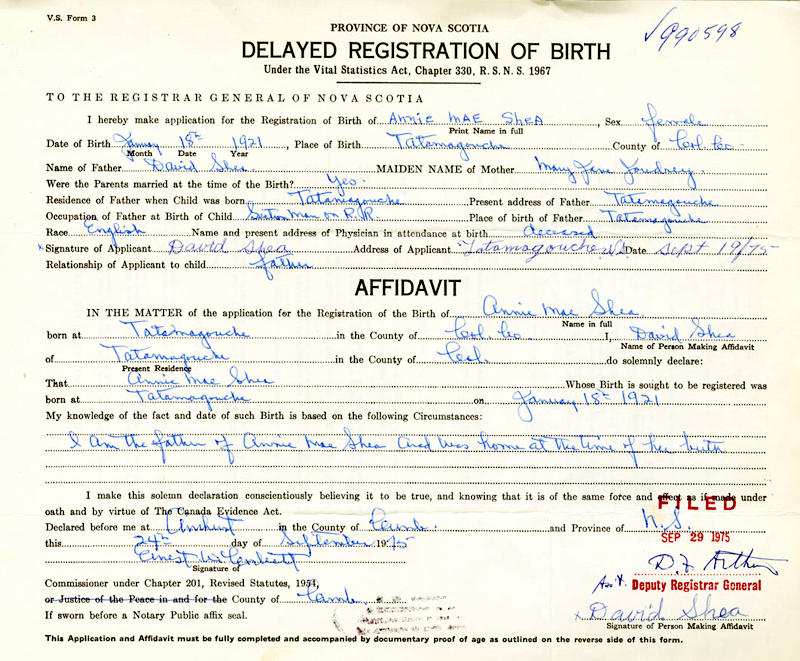 V.S. Form 3
√990598
PROVINCE OF NOVA SCOTIA
DELAYED REGISTRATION OF BIRTH
Under the Vital Statistics Act, Chapter 330, R.S.N.S. 1967
TO THE REGISTRAR GENERAL OF NOVA SCOTIA
I hereby make application for the Registration of Birth of ANNIE MAE SHEA, Sex female
Print Name in full
Date of Birth January 18th 1921, Place of Birth Tatamagouche County of Col. Co.
Month Date Year
Name of Father David Shea MAIDEN NAME of Mother Mary Jane
Were the Parents married at the time of the Birth? Yes.
Residence of Father when Child was born Tatamagouche Present address of Father Tatamagouche
Occupation of Father at Birth of Child Section Man on R.R. Place of birth of Father Tatamagouche
Race English Name and present address of Physician in attendance at birth deceased
x Signature of Applicant David Shea Address of Applicant Tatamagouche N.S. Date Sept 19/75
Relationship of Applicant to child father
AFFIDAVIT
IN THE MATTER of the application for the Registration of the Birth of Annie Mae Shea
Name in full
born at Tatamagouche in the County of Col. Co I, David Shea
Name of Person Making Affidavit
of Tatamagouche in the County of Col. do solemnly declare:
Present Residence
That Annie Mae Shea Whose Birth is sought to be registered was
born at Tatamagouche on January 18th 1921
My knowledge of the fact and date of such Birth is based on the following Circumstances:
I am the father of Annie Mae Shea and was home at the time of her birth
I make this solemn declaration conscientiously believing it to be true, and knowing that it is of the same force and effect as if made under
oath and by virtue of The Canada Evidence Act.
FILED
Declared before me at Amherst in the County of Cumb. and Province of N.S.
SEP 29 1975
this 24th day of September 1975
Ernest W.
Signature of
D. F. Arthur
Commissioner under Chapter 201, Revised Statutes, 1954,
Ass't. Deputy Registrar General
or Justice of the Peace in and for the County of Cumb.
x David Shea
If sworn before a Notary Public affix seal.
Signature of Person Making Affidavit
This Application and Affidavit must be fully completed and accompanied by documentary proof of age as outlined on the reverse side of this form.